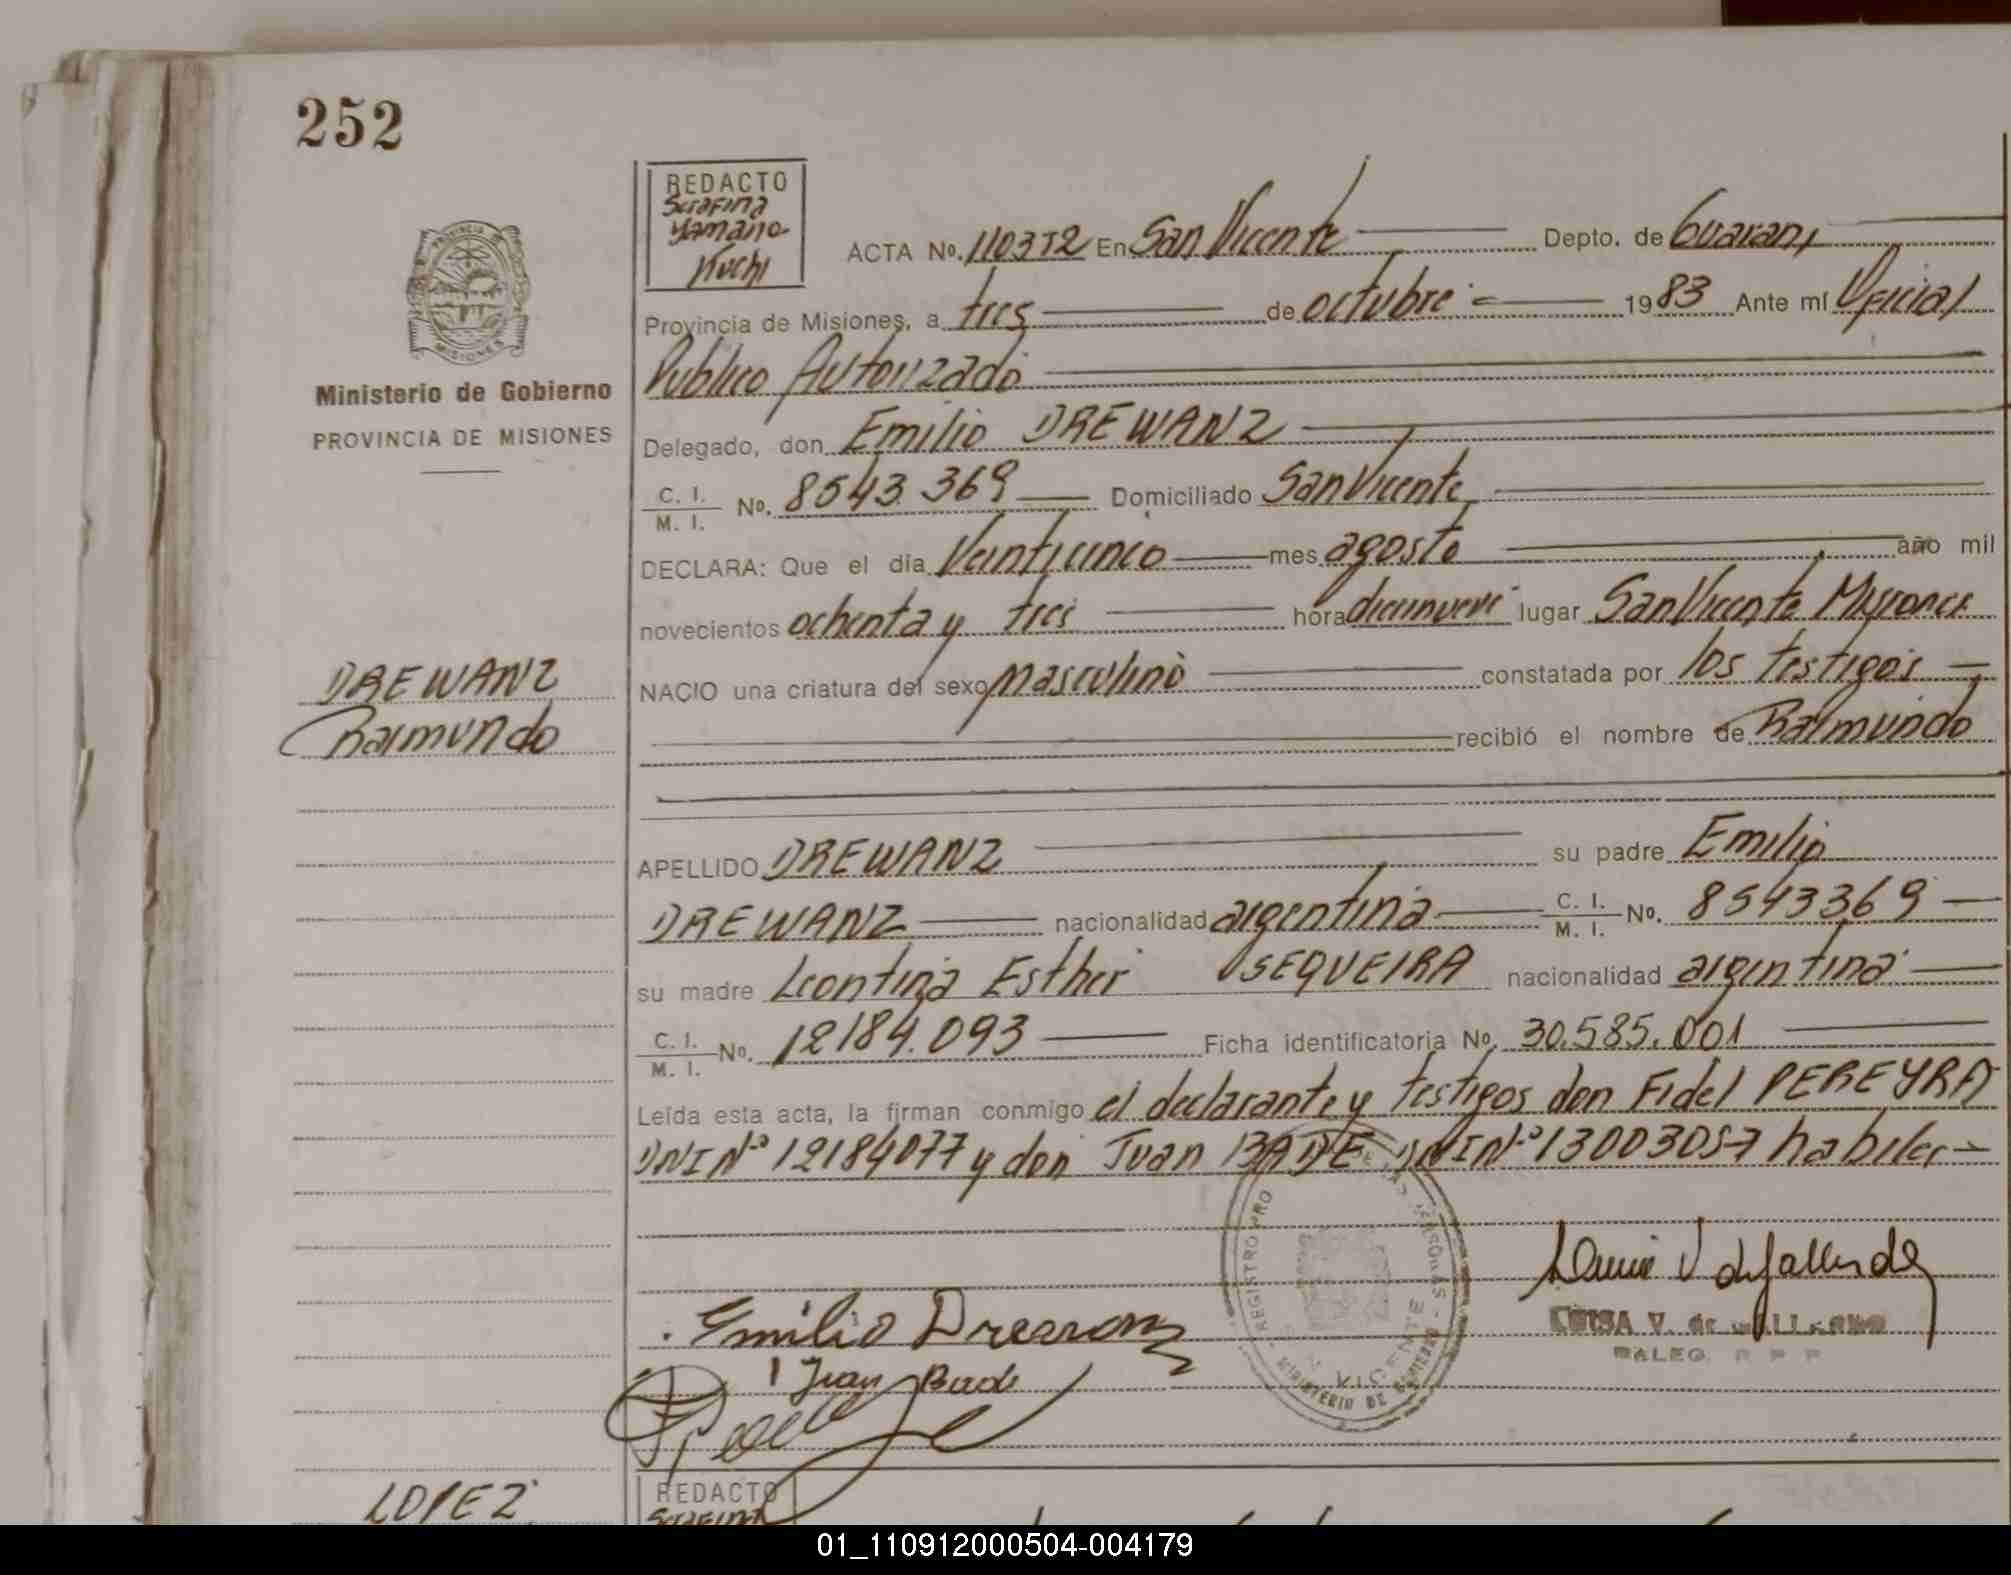 252
REDACTO
Serafina
Yamano
Kuchi
ACTA No. 110372 En San Vicente Depto. de Guarani
Provincia de Misiones, a tres de octubre 1983 Ante mí Oficial
Publico Autorizado
Delegado, don Emilio DREWANZ
C. I.
M. I. No. 8543.369 Domiciliado San Vicente
DECLARA: Que el día Veinticinco mes agosto año mil
novecientos ochenta y tres hora diecinueve lugar San Vicente Misiones
NACIO una criatura del sexo masculino constatada por los testigos
recibió el nombre de Raimundo
APELLIDO DREWANZ su padre Emilio
DREWANZ nacionalidad argentina C. I.
M. I. No. 8543369
su madre Leontina Esther SEQUEIRA nacionalidad argentina
C. I.
M. I. No. 12184.093 Ficha identificatoria No. 30.585.001
Leída esta acta, la firman conmigo el declarante y testigos don Fidel PEREYRA
DNI Nº 12184077 y don Juan BADE DNI Nº 13003057 habiles
PROVINCIA DE
MISIONES
Ministerio de Gobierno
PROVINCIA DE MISIONES
DREWANZ
Raimundo
REGISTRO PRO
PERSONAS
VICENTE
MINISTERIO DE GOBIERNO
LUISA V. de
Emilio Drewanz
Juan Bade
LOPEZ
REDACTO
Serafina
01_110912000504-004179